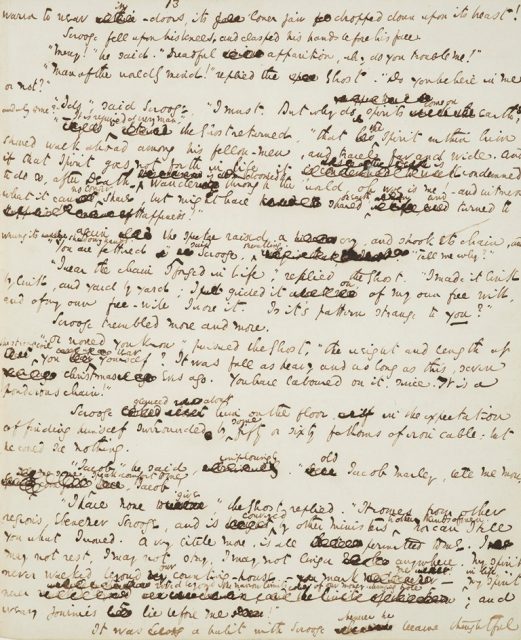 13
warm to wear in-doors, its lower jaw dropped down upon its breast!
Scrooge fell upon his knees, and clasped his hands before his face.
"Mercy!" he said. "Dreadful apparition, why do you trouble me!"
"Man of the worldly mind!" replied the Ghost. "Do you believe in me
or not?"
"I do," said Scrooge. "I must. But why do spirits the earth,
and why come?"
"It is required of every man," the Ghost returned, "that the Spirit within him
should walk abroad among his fellow-men, and travel far and wide. And
if that Spirit goes not forth in life, it is condemned
to do so, after Death. to wander through the world, oh woe is me! - and witness
what it cannot share, but might have shared on earth, and turned to
happiness!"
Again the spectre raised a cry, and shook its chain, and
wrung its shadowy hands.
"You are fettered," said Scrooge, trembling. "Tell me why?"
"I wear the chain I forged in life," replied the Ghost. "I made it link
by link, and yard by yard; I girded it on of my own free will,
and of my own free-will I wore it. Is its pattern strange to you?"
Scrooge trembled more and more.
"Or would you know," pursued the Ghost, "the weight and length of
the strong coil you bear yourself? It was full as heavy and as long as this, seven
Christmas Eves ago. You have laboured on it, since. It is a
ponderous chain!"
Scrooge glanced about him on the floor, in the expectation
of finding himself surrounded by some fifty or sixty fathoms of iron cable: but
he could see nothing.
"Jacob," he said, imploringly. "old Jacob Marley, tell me more.
Speak comfort to me, Jacob
"I have none to give," the Ghost replied. "It comes from other
regions, Ebenezer Scrooge, and is conveyed by other ministers, to other kinds of men. Nor can I tell
you what I would. A very little more, is all permitted to me. I
may not rest, I may not stay, I may not linger anywhere. My spirit
never walked beyond our counting-house - mark me! - in life my spirit
never roved beyond the narrow limits of our money-changing hole; and
weary journies lie before me!"
It was a habit with Scrooge whenever he became thoughtful